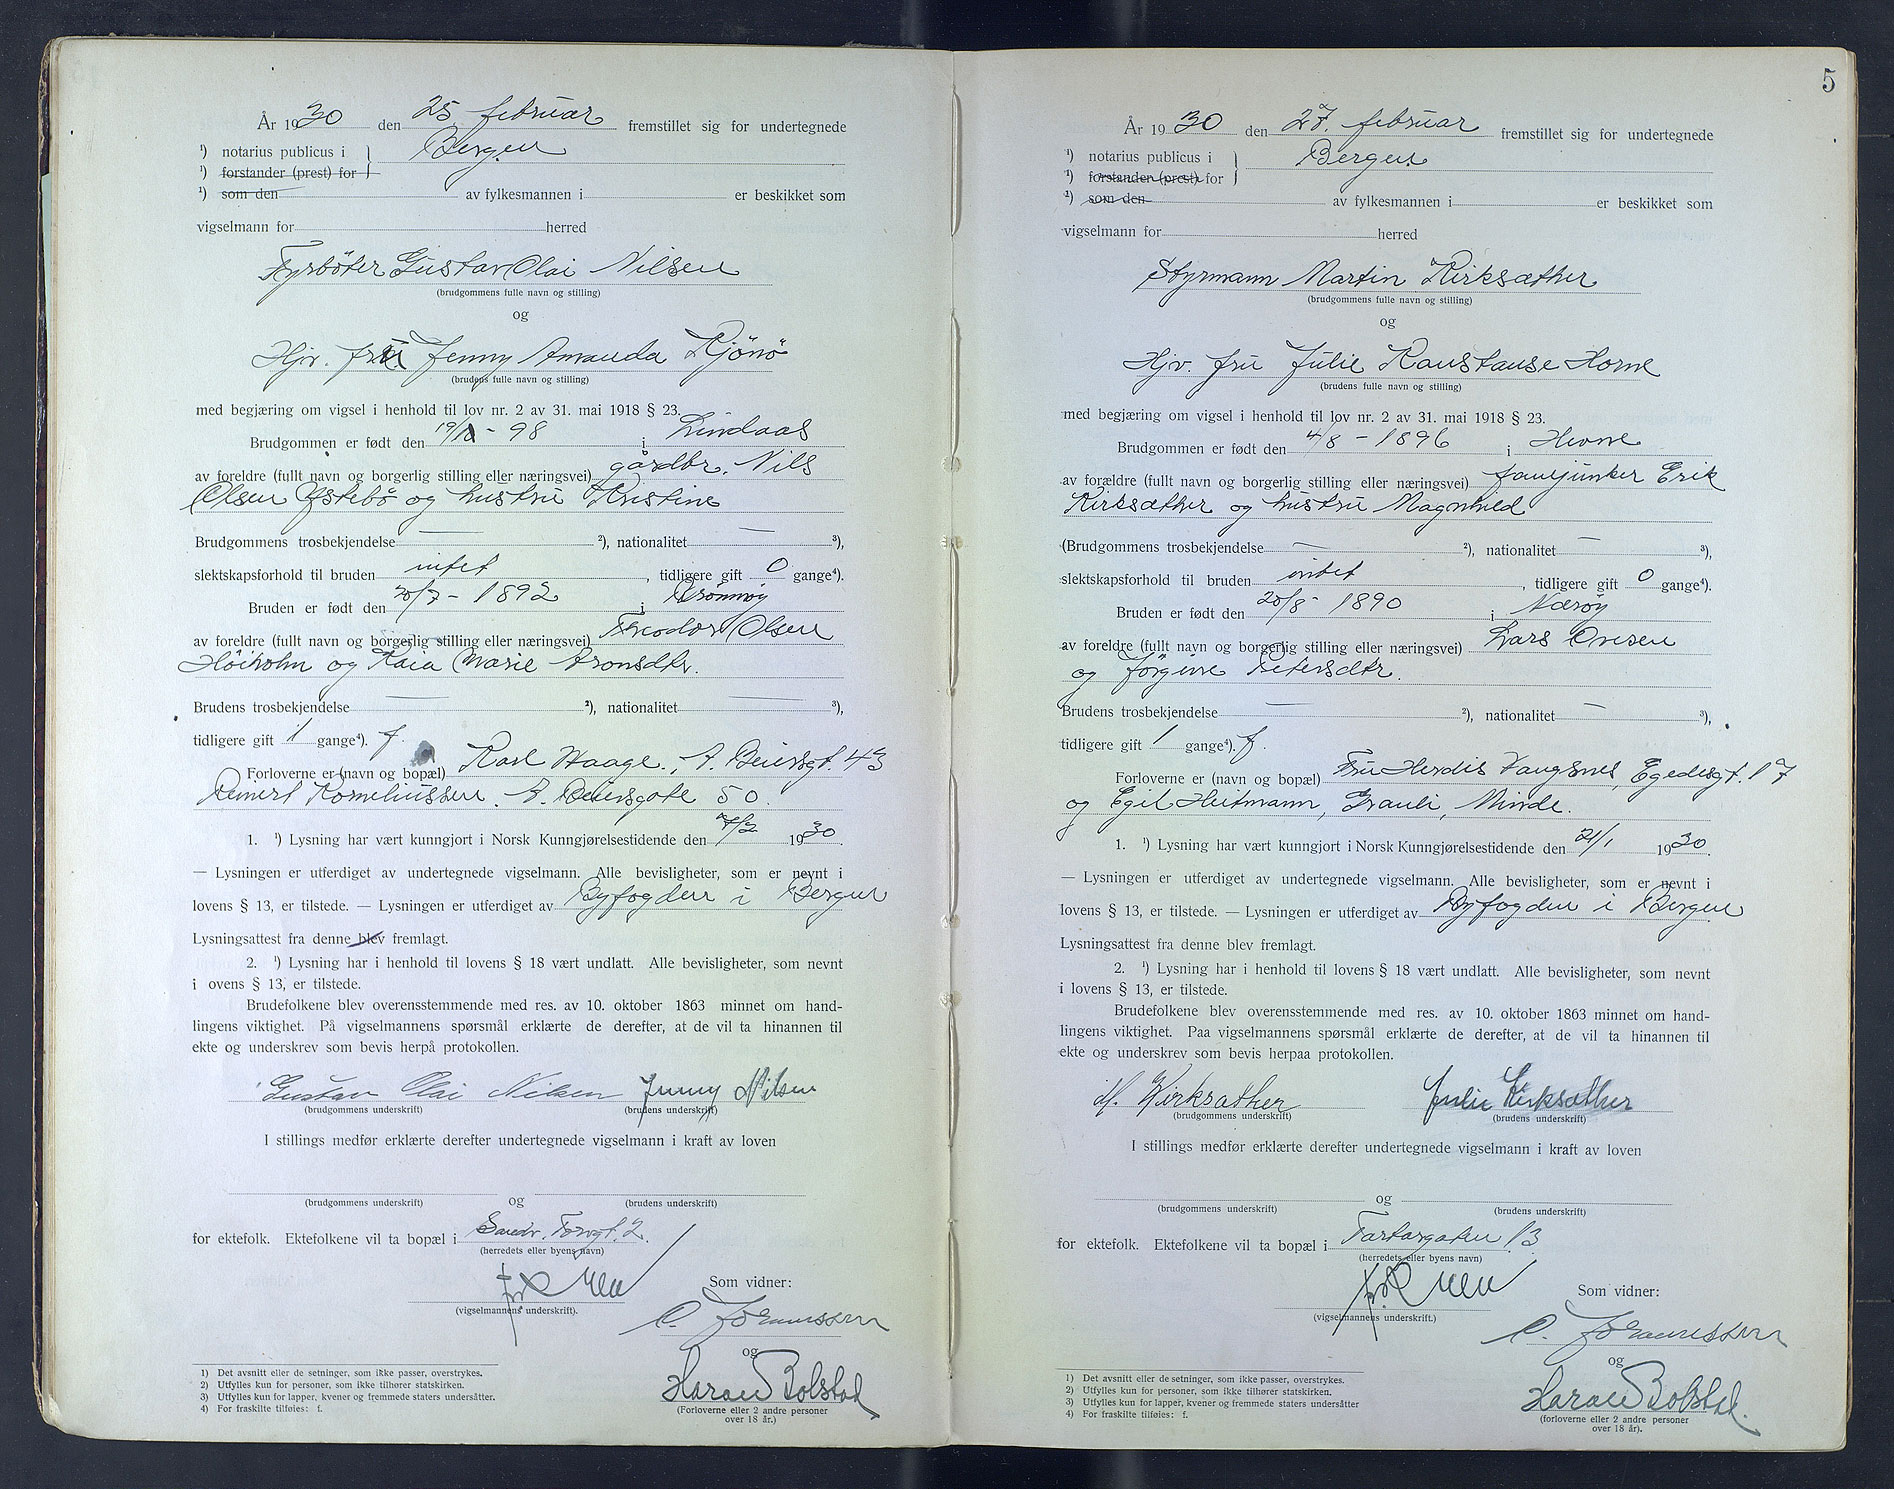 År 1930 den 25. februar fremstillet sig for undertegnede
¹) notarius publicus i } Bergen
¹) forstander (prest) for
¹) som den av fylkesmannen i er beskikket som
vigselmann for herred
Fyrbøter Gustav Olai Nilsen
(brudgommens fulle navn og stilling)
og
Hjv. fru Jenny Amanda Kjönö
(brudens fulle navn og stilling)
med begjæring om vigsel i henhold til lov nr. 2 av 31. mai 1918 § 23.
Brudgommen er født den - 98 i Lindaas
av foreldre (fullt navn og borgerlig stilling eller næringsvei) gårdbr. Nils
Olsen Østebö og hustru Kristine
Brudgommens trosbekjendelse — ²), nationalitet — ³),
slektskapsforhold til bruden intet, tidligere gift 0 gange⁴).
Bruden er født den 20/7 - 1892 i Brönnöy
av foreldre (fullt navn og borgerlig stilling eller næringsvei) Theodor Olsen
Höiholm og Kaia Marie Aronsdtr.
Brudens trosbekjendelse — ²), nationalitet — ³),
tidligere gift 1 gange⁴). f.
Forloverne er (navn og bopæl) Karl Haage, A. Beiersgt. 43
Reinert Korneliussen, A. Beiersgate 50.
1. ¹) Lysning har vært kunngjort i Norsk Kunngjørelsestidende den 7/2 1930.
— Lysningen er utferdiget av undertegnede vigselmann. Alle bevisligheter, som er nevnt i
lovens § 13, er tilstede. — Lysningen er utferdiget av Byfogden i Bergen
Lysningsattest fra denne blev fremlagt.
2. ¹) Lysning har i henhold til lovens § 18 vært undlatt. Alle bevisligheter, som nevnt
i ovens § 13, er tilstede.
Brudefolkene blev overensstemmende med res. av 10. oktober 1863 minnet om hand-
lingens viktighet. På vigselmannens spørsmål erklærte de derefter, at de vil ta hinannen til
ekte og underskrev som bevis herpå protokollen.
Gustav Olai Nilsen Jenny Nilsen
(brudgommens underskrift) (brudens underskrift)
I stillings medfør erklærte derefter undertegnede vigselmann i kraft av loven
og
(brudgommens underskrift) (brudens underskrift)
for ektefolk. Ektefolkene vil ta bopæl i Sandv. Torvgt. 2.
(herredets eller byens navn)
Som vidner:
(vigselmannens underskrift).
C. Johannessen
og
Harald Bolstad
(Forloverne eller 2 andre personer
over 18 år.)
1) Det avsnitt eller de setninger, som ikke passer, overstrykes.
2) Utfylles kun for personer, som ikke tilhører statskirken.
3) Utfylles kun for lapper, kvener og fremmede staters undersåtter.
4) For fraskilte tilføies: f.
5
År 1930 den 27. februar fremstillet sig for undertegnede
¹) notarius publicus i } Bergen
¹) forstander (prest) for
¹) som den av fylkesmannen i er beskikket som
vigselmann for herred
Styrmann Martin Kirksæther
(brudgommens fulle navn og stilling)
og
Hjv. fru Julie Konstanse Horne
(brudens fulle navn og stilling)
med begjæring om vigsel i henhold til lov nr. 2 av 31. mai 1918 § 23.
Brudgommen er født den 4/8 - 1896 i Hevne
av foreldre (fullt navn og borgerlig stilling eller næringsvei) fanejunker Erik
Kirksæther og hustru Magnhild
(Brudgommens trosbekjendelse — ²), nationalitet — ³),
slektskapsforhold til bruden intet, tidligere gift 0 gange⁴).
Bruden er født den 20/8 - 1890 i Nærøy
av foreldre (fullt navn og borgerlig stilling eller næringsvei) Lars Ovesen
og Jörgine Petersdtr.
Brudens trosbekjendelse — ²), nationalitet — ³),
tidligere gift 1 gange⁴). f.
Forloverne er (navn og bopæl) Fru Herdis Vangsnes, Egedesgt. 17
og Egil Heitmann, Grauli, Minde.
1. ¹) Lysning har vært kunngjort i Norsk Kunngjørelsestidende den 21/1 1930.
— Lysningen er utferdiget av undertegnede vigselmann. Alle bevisligheter, som er nevnt i
lovens § 13, er tilstede. — Lysningen er utferdiget av Byfogden i Bergen
Lysningsattest fra denne blev fremlagt.
2. ¹) Lysning har i henhold til lovens § 18 vært undlatt. Alle bevisligheter, som nevnt
i lovens § 13, er tilstede.
Brudefolkene blev overensstemmende med res. av 10. oktober 1863 minnet om hand-
lingens viktighet. Paa vigselmannens spørsmål erklærte de derefter, at de vil ta hinannen til
ekte og underskrev som bevis herpaa protokollen.
M. Kirksæther Julie Kirksæther
(brudgommens underskrift) (brudens underskrift)
I stillings medfør erklærte derefter undertegnede vigselmann i kraft av loven
og
(brudgommens underskrift) (brudens underskrift)
for ektefolk. Ektefolkene vil ta bopæl i Tartargaten 13
(herredets eller byens navn)
Som vidner:
(vigselmannens underskrift.)
C. Johannessen
og
Harald Bolstad.
(forloverne eller 2 andre personer
over 18 år).
1) Det avsnitt eller de setninger, som ikke passer, overstrykes.
2) Utfylles kun for personer, som ikke tilhører statskirken.
3) Utfylles kun for lapper, kvener og fremmede staters undersåtter
4) For fraskilte tilføies: f.